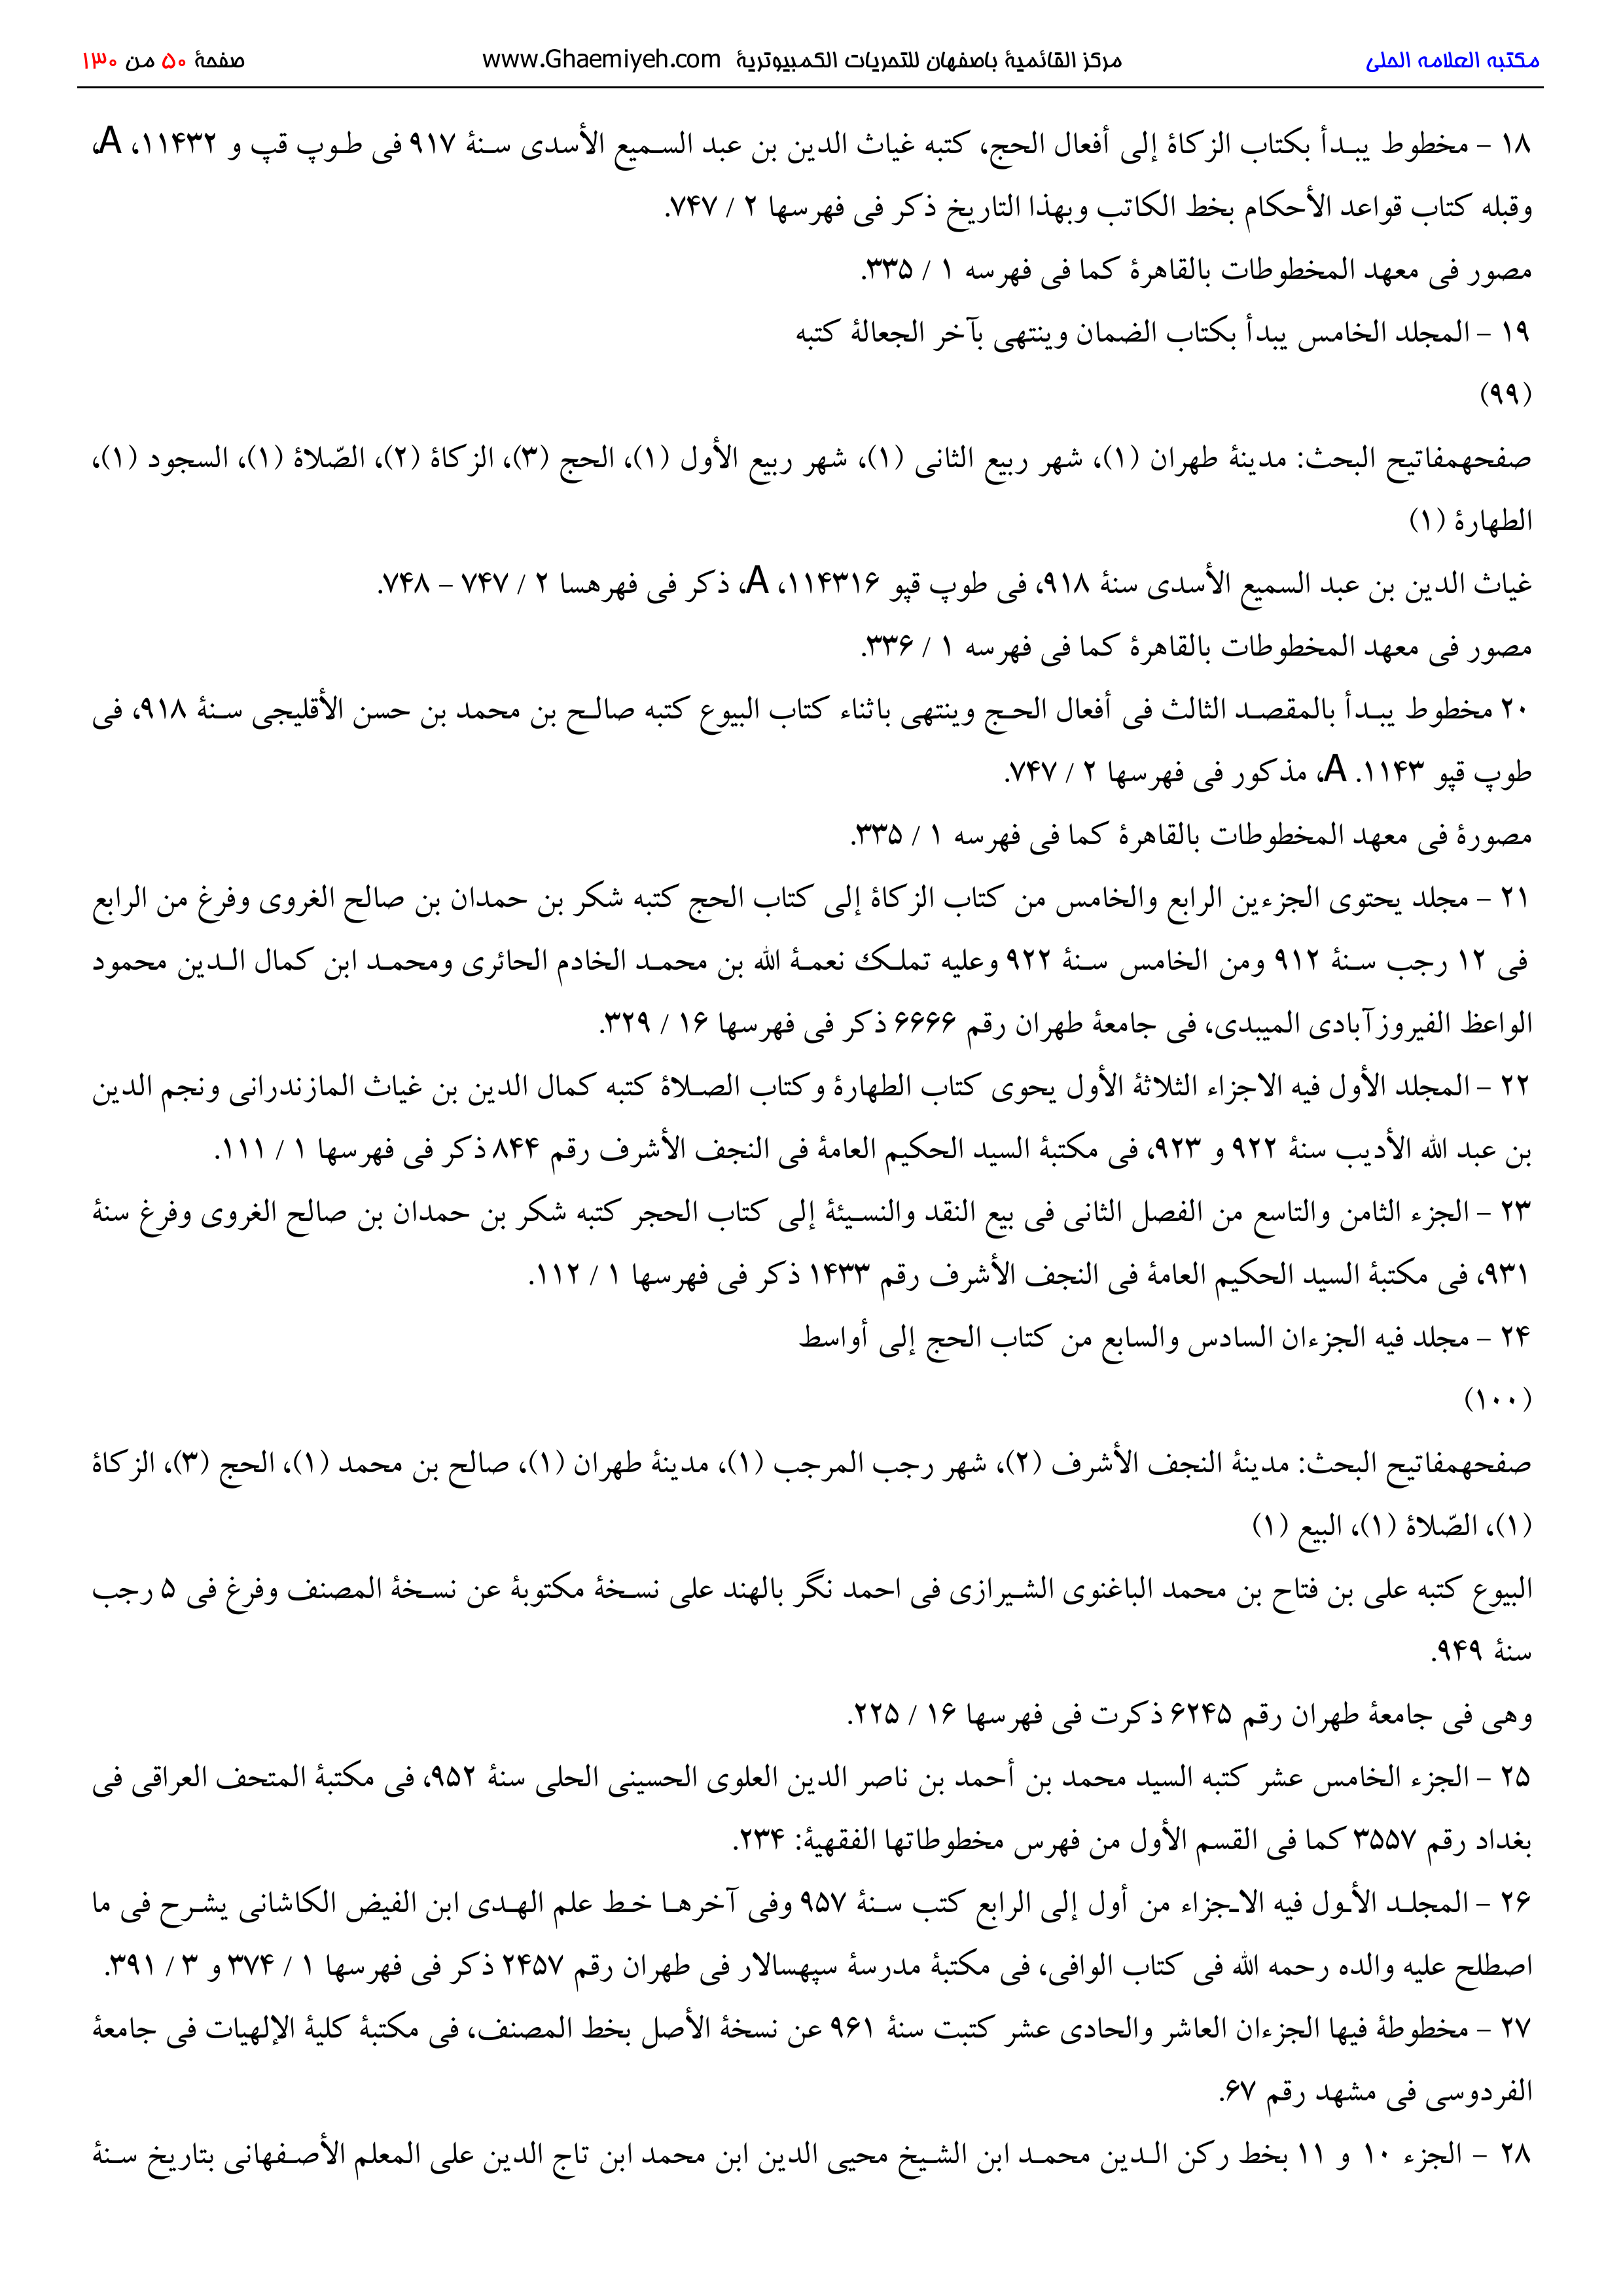 مكتبه العلامه الحلى مركز القائمیة باصفهان للتحریات الكمبیوتریة www.Ghaemiyeh.com صفحة ۵۰ من ۱۳۰
۱۸ – مخطوط یبدأ بكتاب الزكاة إلى أفعال الحج، كتبه غیاث الدین بن عبد السمیع الأسدى سنة ۹۱۷ فى طوپ قپ و ۱۱۴۳۲، A،
وقبله كتاب قواعد الأحكام بخط الكاتب وبهذا التاریخ ذكر فى فهرسها ۲ / ۷۴۷.
مصور فى معهد المخطوطات بالقاهرة كما فى فهرسه ۱ / ۳۳۵.
۱۹ – المجلد الخامس یبدأ بكتاب الضمان وینتهى بآخر الجعالة كتبه
(۹۹)
صفحهمفاتیح البحث: مدینة طهران (۱)، شهر ربیع الثانى (۱)، شهر ربیع الأول (۱)، الحج (۳)، الزكاة (۲)، الصّلاة (۱)، السجود (۱)،
الطهارة (۱)
غیاث الدین بن عبد السمیع الأسدى سنة ۹۱۸، فى طوپ قپو ۱۱۴۳۱۶، A، ذكر فى فهرهسا ۲ / ۷۴۷ – ۷۴۸.
مصور فى معهد المخطوطات بالقاهرة كما فى فهرسه ۱ / ۳۳۶.
۲۰ مخطوط یبدأ بالمقصد الثالث فى أفعال الحج وینتهى باثناء كتاب البیوع كتبه صالح بن محمد بن حسن الأقلیجى سنة ۹۱۸، فى
طوپ قپو ۱۱۴۳. A، مذكور فى فهرسها ۲ / ۷۴۷.
مصورة فى معهد المخطوطات بالقاهرة كما فى فهرسه ۱ / ۳۳۵.
۲۱ – مجلد یحتوى الجزءین الرابع والخامس من كتاب الزكاة إلى كتاب الحج كتبه شكر بن حمدان بن صالح الغروى وفرغ من الرابع
فى ۱۲ رجب سنة ۹۱۲ ومن الخامس سنة ۹۲۲ وعلیه تملك نعمة الله بن محمد الخادم الحائرى ومحمد ابن كمال الدین محمود
الواعظ الفیروزآبادى المیبدى، فى جامعة طهران رقم ۶۶۶۶ ذكر فى فهرسها ۱۶ / ۳۲۹.
۲۲ – المجلد الأول فیه الاجزاء الثلاثة الأول یحوى كتاب الطهارة وكتاب الصلاة كتبه كمال الدین بن غیاث المازندرانى ونجم الدین
بن عبد الله الأدیب سنة ۹۲۲ و ۹۲۳، فى مكتبة السید الحكیم العامة فى النجف الأشرف رقم ۸۴۴ ذكر فى فهرسها ۱ / ۱۱۱.
۲۳ – الجزء الثامن والتاسع من الفصل الثانى فى بیع النقد والنسیئة إلى كتاب الحجر كتبه شكر بن حمدان بن صالح الغروى وفرغ سنة
۹۳۱، فى مكتبة السید الحكیم العامة فى النجف الأشرف رقم ۱۴۳۳ ذكر فى فهرسها ۱ / ۱۱۲.
۲۴ – مجلد فیه الجزءان السادس والسابع من كتاب الحج إلى أواسط
(۱۰۰)
صفحهمفاتیح البحث: مدینة النجف الأشرف (۲)، شهر رجب المرجب (۱)، مدینة طهران (۱)، صالح بن محمد (۱)، الحج (۳)، الزكاة
(۱)، الصّلاة (۱)، البیع (۱)
البیوع كتبه على بن فتاح بن محمد الباغنوى الشیرازى فى احمد نگر بالهند على نسخة مكتوبة عن نسخة المصنف وفرغ فى ۵ رجب
سنة ۹۴۹.
وهى فى جامعة طهران رقم ۶۲۴۵ ذكرت فى فهرسها ۱۶ / ۲۲۵.
۲۵ – الجزء الخامس عشر كتبه السید محمد بن أحمد بن ناصر الدین العلوى الحسینى الحلى سنة ۹۵۲، فى مكتبة المتحف العراقى فى
بغداد رقم ۳۵۵۷ كما فى القسم الأول من فهرس مخطوطاتها الفقهیة: ۲۳۴.
۲۶ – المجلد الأول فیه الاجزاء من أول إلى الرابع كتب سنة ۹۵۷ وفى آخرها خط علم الهدى ابن الفیض الكاشانى یشرح فى ما
اصطلح علیه والده رحمه الله فى كتاب الوافى، فى مكتبة مدرسة سپهسالار فى طهران رقم ۲۴۵۷ ذكر فى فهرسها ۱ / ۳۷۴ و ۳ / ۳۹۱.
۲۷ – مخطوطة فیها الجزءان العاشر والحادى عشر كتبت سنة ۹۶۱ عن نسخة الأصل بخط المصنف، فى مكتبة كلیة الإلهیات فى جامعة
الفردوسى فى مشهد رقم ۶۷.
۲۸ – الجزء ۱۰ و ۱۱ بخط ركن الدین محمد ابن الشیخ محیى الدین ابن محمد ابن تاج الدین على المعلم الأصفهانى بتاریخ سنة